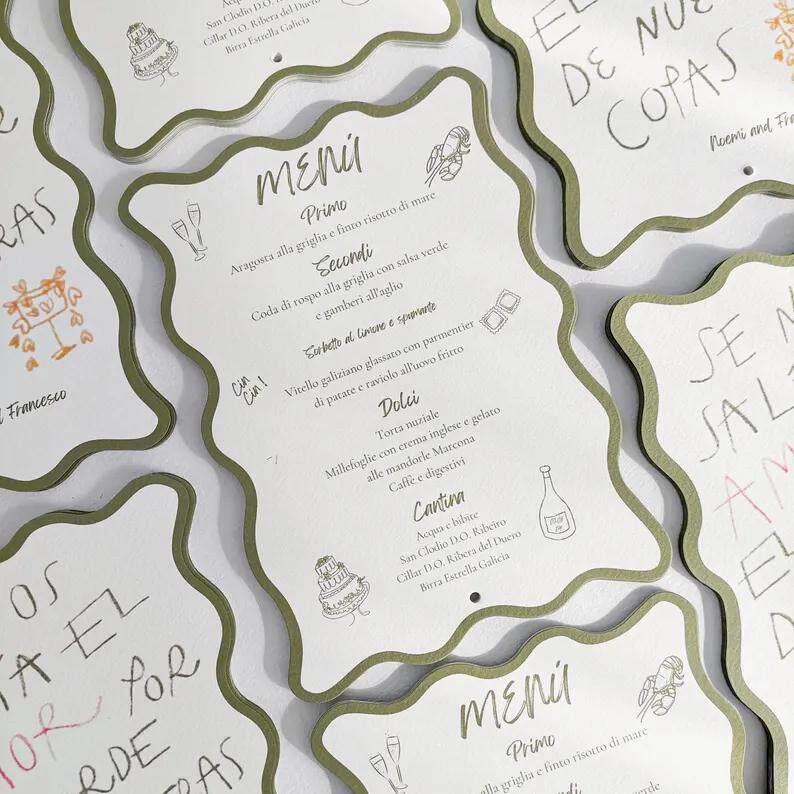 Acqu
San Clodio D.O. Ri
Cillar D.O. Ribera del Duero
Birra Estrella Galicia
EL
DE NUE
COPAS
Noemi and Fra
RAS
d Francesco
MENÚ
Primo
Aragosta alla griglia e finto risotto di mare
Secondi
Coda di rospo alla griglia con salsa verde
e gamberi all'aglio
Sorbetto al limone e spumante
Cin
Cin!
Vitello galiziano glassato con parmentier
di patate e raviolo all'uovo fritto
Dolci
Torta nuziale
Millefoglie con crema inglese e gelato
alle mandorle Marcona
Caffè e digestivi
Cantina
Acqua e bibite
San Clodio D.O. Ribeiro
Cillar D.O. Ribera del Duero
Birra Estrella Galicia
SE N
SAL
AM
EL
D
OS
TA EL
MOR POR
RDE
TRAS
MENÚ
Primo
alla griglia e finto risotto di mare
ndi
verde